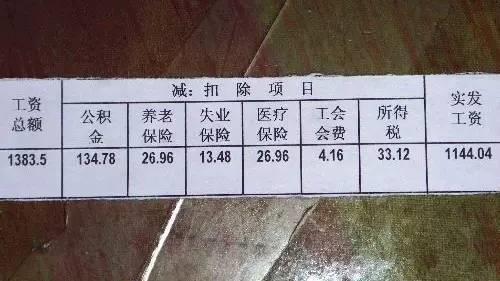 减：扣 除 项 目
工资总额 公积金 养老保险 失业保险 医疗保险 工会会费 所得税 实发工资
1383.5 134.78 26.96 13.48 26.96 4.16 33.12 1144.04